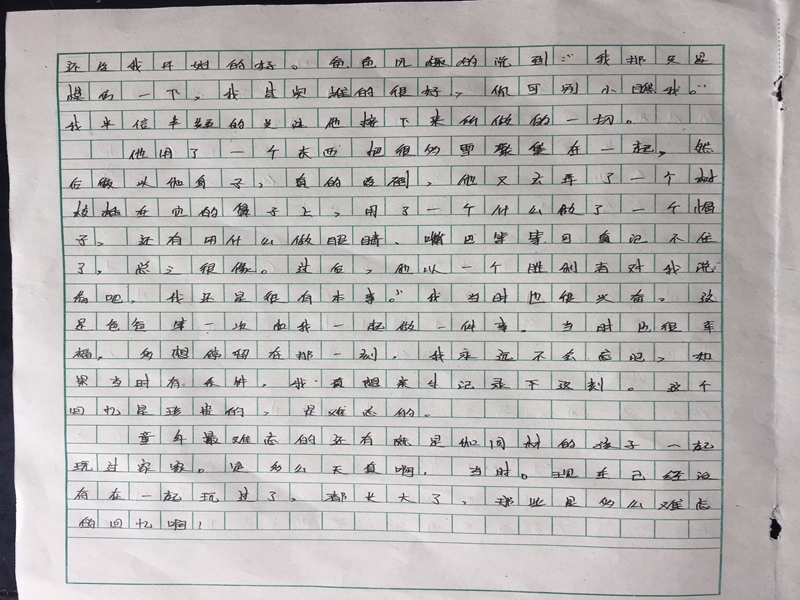 还没我开始的好。爸爸风趣的说到:“我那只是
提的一下,我其实堆的很好,你可别小瞧我。”
我半信半疑的关注他接下来所做的一切。
他用了一个东西把很多雪聚集在一起,然
后做以他身子,真的没倒,他又去弄了一个树
枝插在它的身子上,用了一个什么做了一个帽
子,还有用什么做眼睛、嘴巴等等可真记不住
了,总之很像。过后,他以一个胜利者对我说
看吧,我还是很有本事。”我当时也很兴奋,这
是爸爸第一次和我一起做一件事。当时也很幸
福,多想停留在那一刻,我永远不会忘记,如
果当时有条件,我真想来个记录下这刻。这个
回忆是珍贵的,是难忘的。
童年最难忘的还有就是和同村的孩子一起
玩过家家。是多么天真啊,当时。现在已经没
有在一起玩过了,都长大了,那些是多么难忘
的回忆啊!